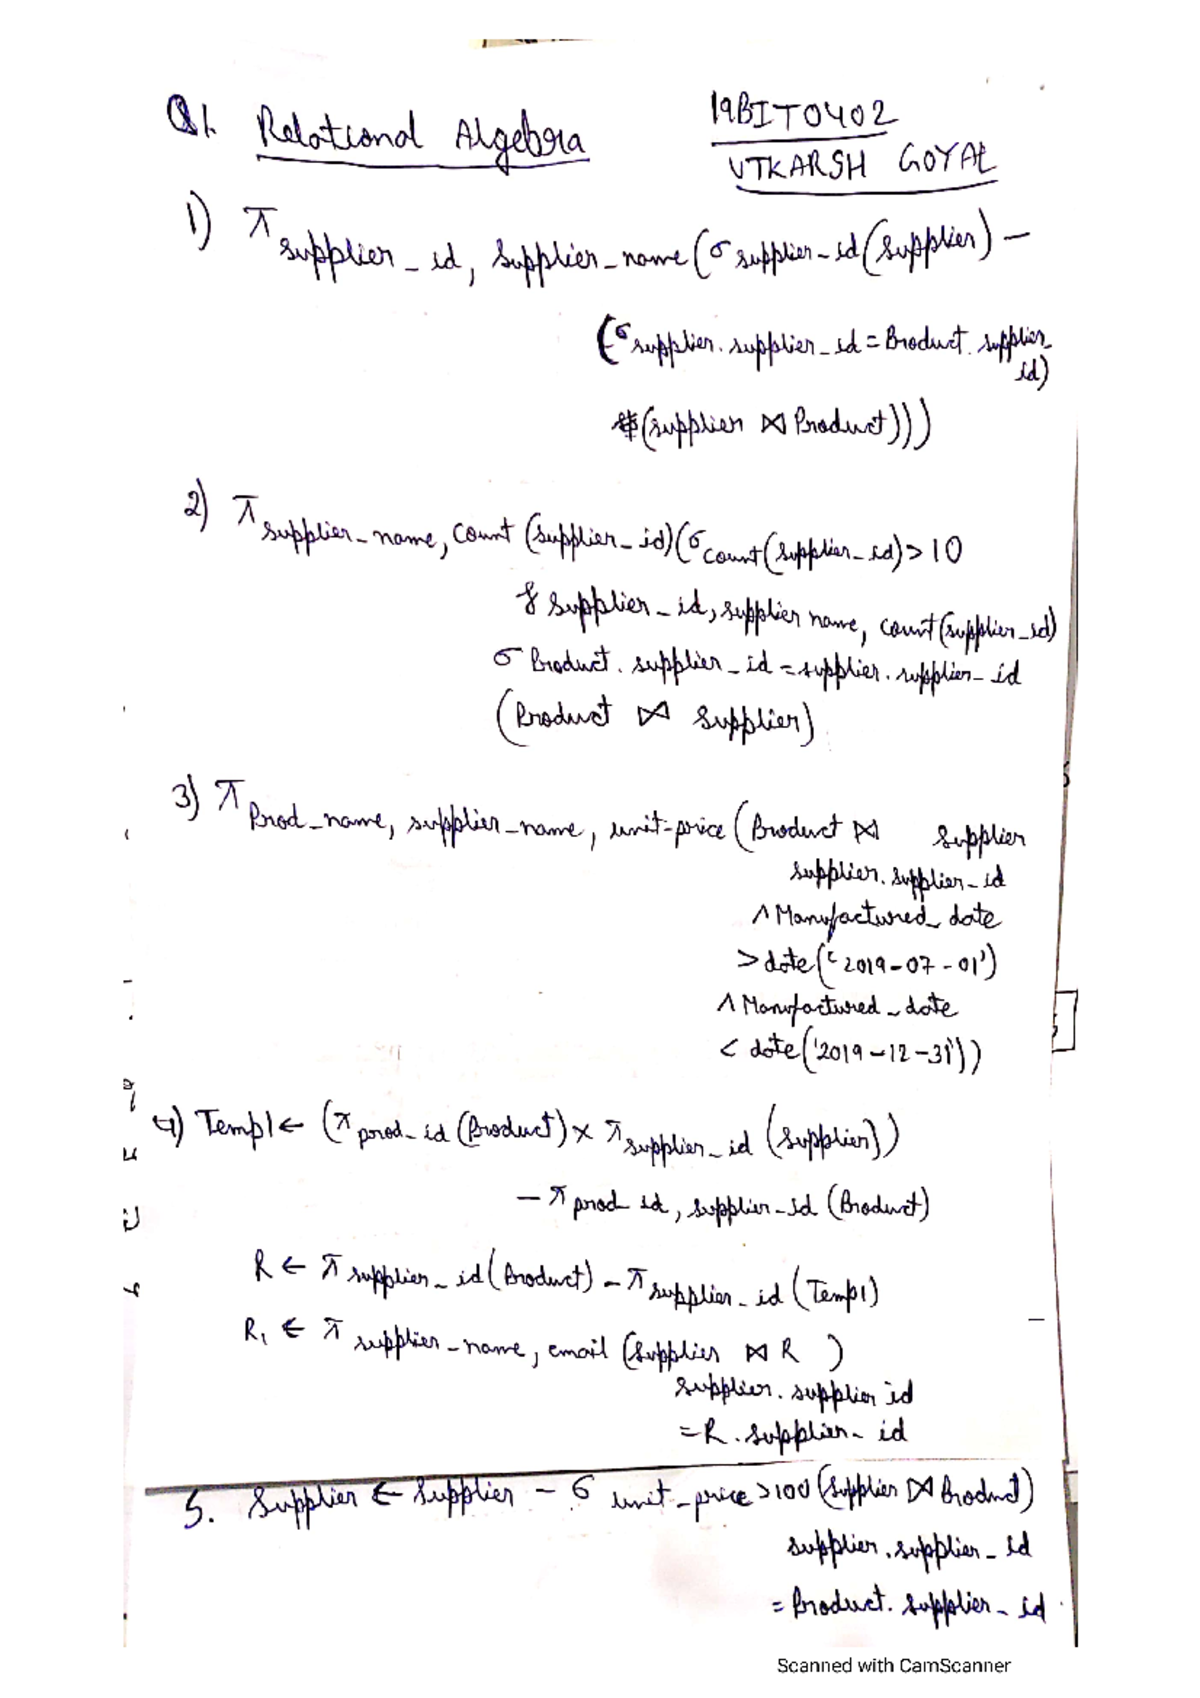 Q1. Relational Algebra
19BIT0402
UTKARSH GOYAL
1) π supplier_id, supplier_name (σ supplier_id (supplier) –
(σ supplier.supplier_id = Product.supplier_
id)
(supplier ⋈ Product)))
2) π supplier_name, count (supplier_id) (σ count (supplier_id) > 10
supplier_id, supplier name, count (supplier_id)
σ Product.supplier_id = supplier.supplier_id
(Product ⋈ supplier)
3) π Prod_name, supplier_name, unit-price (Product ⋈ supplier
supplier.supplier_id
∧ Manufactured_date
> date('2019-07-01')
∧ Manufactured_date
< date('2019-12-31'))
4) Temp1 ← (π prod_id (Product) × π supplier_id (supplier))
– π prod id, supplier_id (Product)
R ← π supplier_id (Product) – π supplier_id (Temp1)
R1 ← π supplier_name, email (supplier ⋈ R )
supplier.supplier id
= R.supplier_id
5. Supplier ← supplier – σ unit_price > 100 (supplier ⋈ Product)
supplier.supplier_id
= Product.supplier_id
Scanned with CamScanner